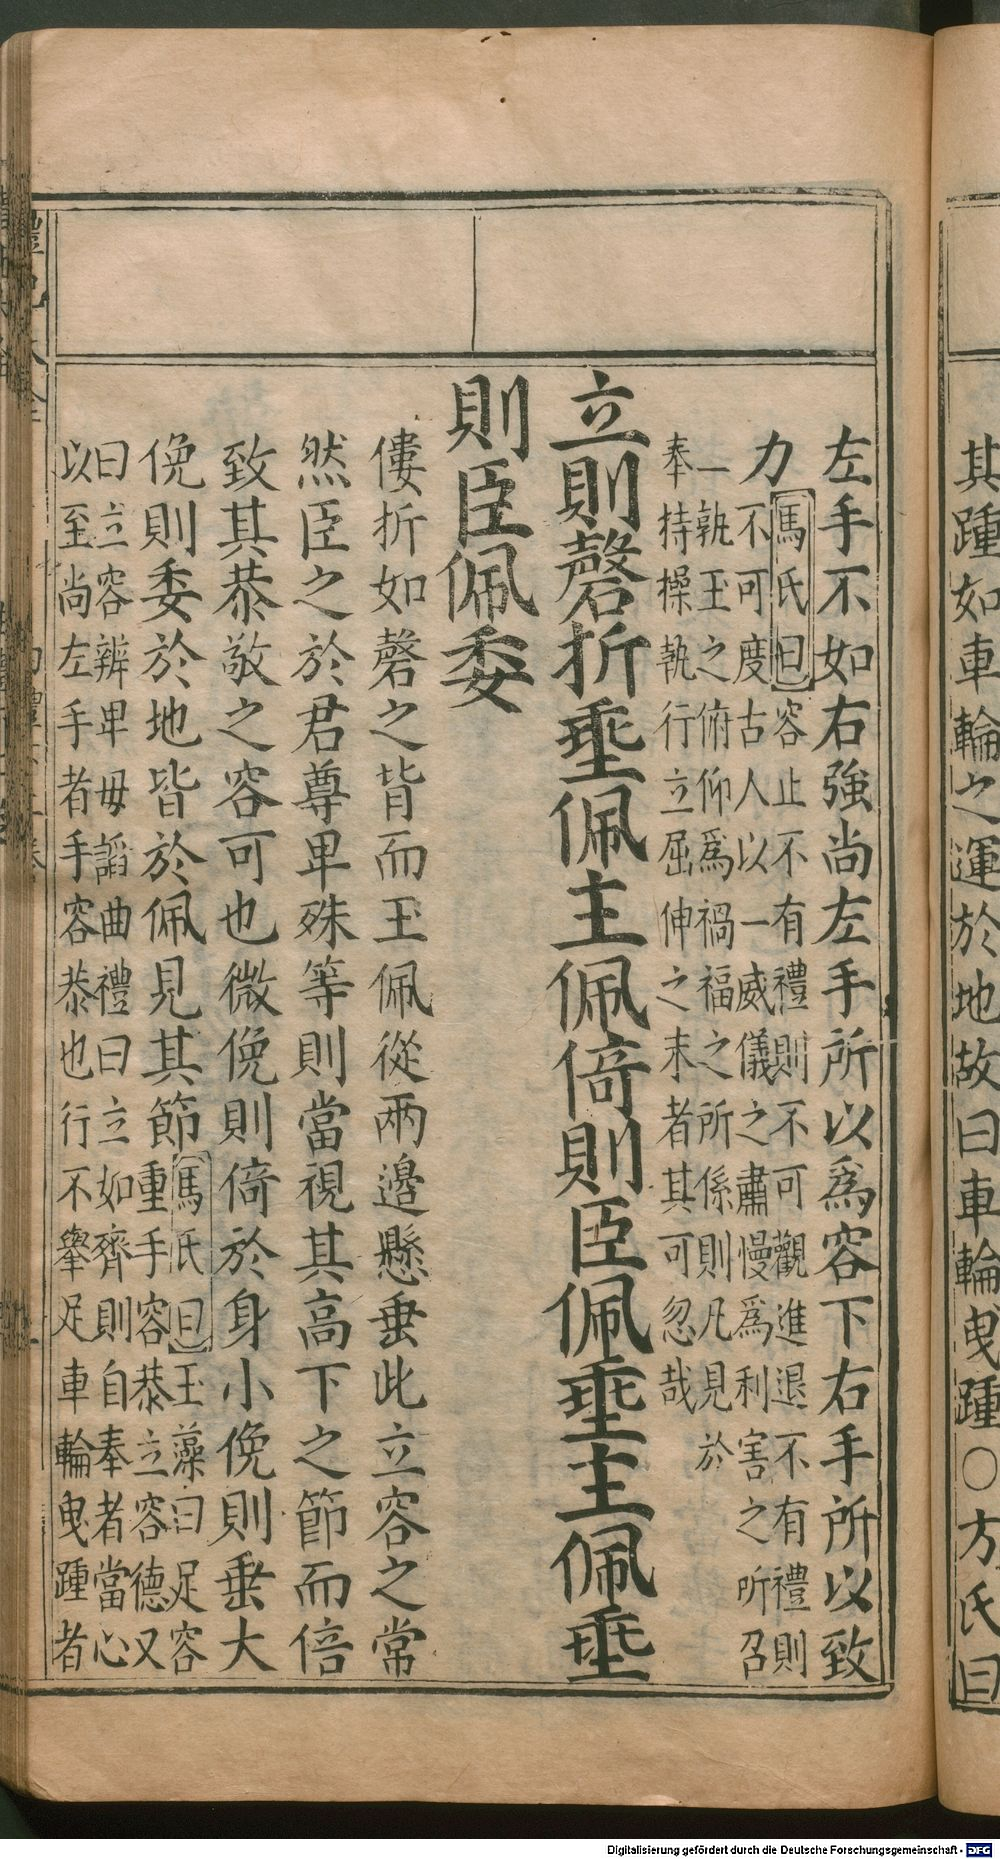 其踵如車輪之運於地故曰車輪曳踵○方氏曰
左手不如右強尚左手所以為容下右手所以致
力馬氏曰容止不有禮則不可觀進退不有禮則
不可度古人以一威儀之肅慢為利害之所召
一執玉之俯仰為禍福之所係則凡見於
奉持操執行立屈伸之末者其可忽哉
立則磬折垂佩主佩倚則臣佩垂主佩垂
則臣佩委
僂折如磬之背而玉佩從兩邊懸垂此立容之常
然臣之於君尊卑殊等則當視其高下之節而倍
致其恭敬之容可也微俛則倚於身小俛則垂大
俛則委於地皆於佩見其節馬氏曰玉藻曰足容
重手容恭立容德又
曰立容辨卑毋謟曲禮曰立如齊則自奉者當心
以至尚左手者手容恭也行不舉足車輪曳踵者
Digitalisierung gefördert durch die Deutsche Forschungsgemeinschaft - DFG